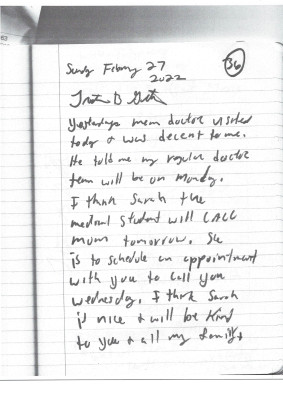 36
Sundy Febrary 27
2022
Yesterdays mean doctor visited
today & was decent to me.
He told me my regular doctor
team will be on Monday.
I think Sarah the
medical student will CALL
mom tomorrow. She
is to schedule an appointment
with you to call you
Wednesday. I think Sarah
is nice & will be kind
to you & all my family